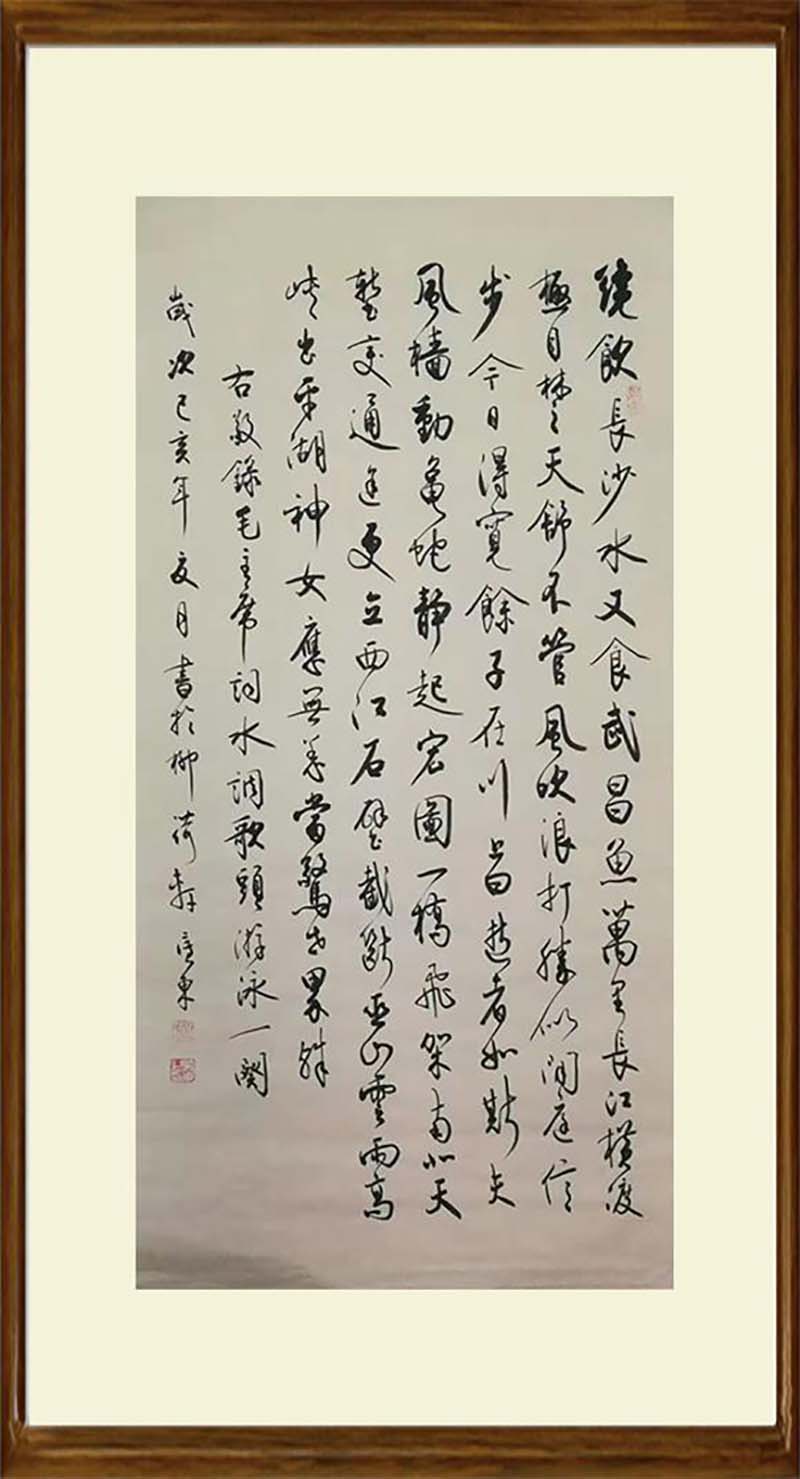 纔飲長沙水又食武昌魚萬里長江橫渡
極目楚天舒不管風吹浪打勝似閒庭信
步今日得寬餘子在川上曰逝者如斯夫
風檣動龜蛇靜起宏圖一橋飛架南北天
塹變通途更立西江石壁截斷巫山雲雨高
峽出平湖神女應無恙當驚世界殊
右敬錄毛主席詞水調歌頭游泳一闋
歲次己亥年夏月書於柳荷軒